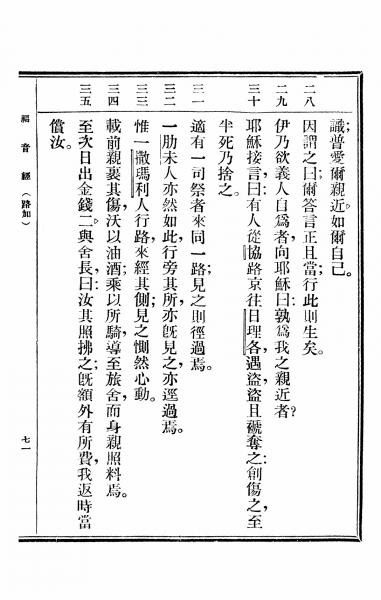 識普愛爾親近如爾自己。
二八 因謂之曰爾答言正且當行此則生矣。
二九 伊乃欲義人自爲者向耶穌曰孰爲我之親近者?
三十 耶穌接言曰有人從協路京往日理各遇盜盜且褫奪之創傷之至
半死乃捨之。
三一 適有一司祭者來同一路見之則徑過焉。
三二 一肋未人亦然如此行旁其所亦旣見之亦逕過焉。
三三 惟一撒瑪利人行路來經其側見之惻然心動。
三四 載前親裹其傷沃以油酒乘以所騎導至旅舍而身親照料焉。
三五 至次日出金錢二與舍長曰汝其照拂之旣額外有所費我返時當
償汝。
福音經(路加)
七一